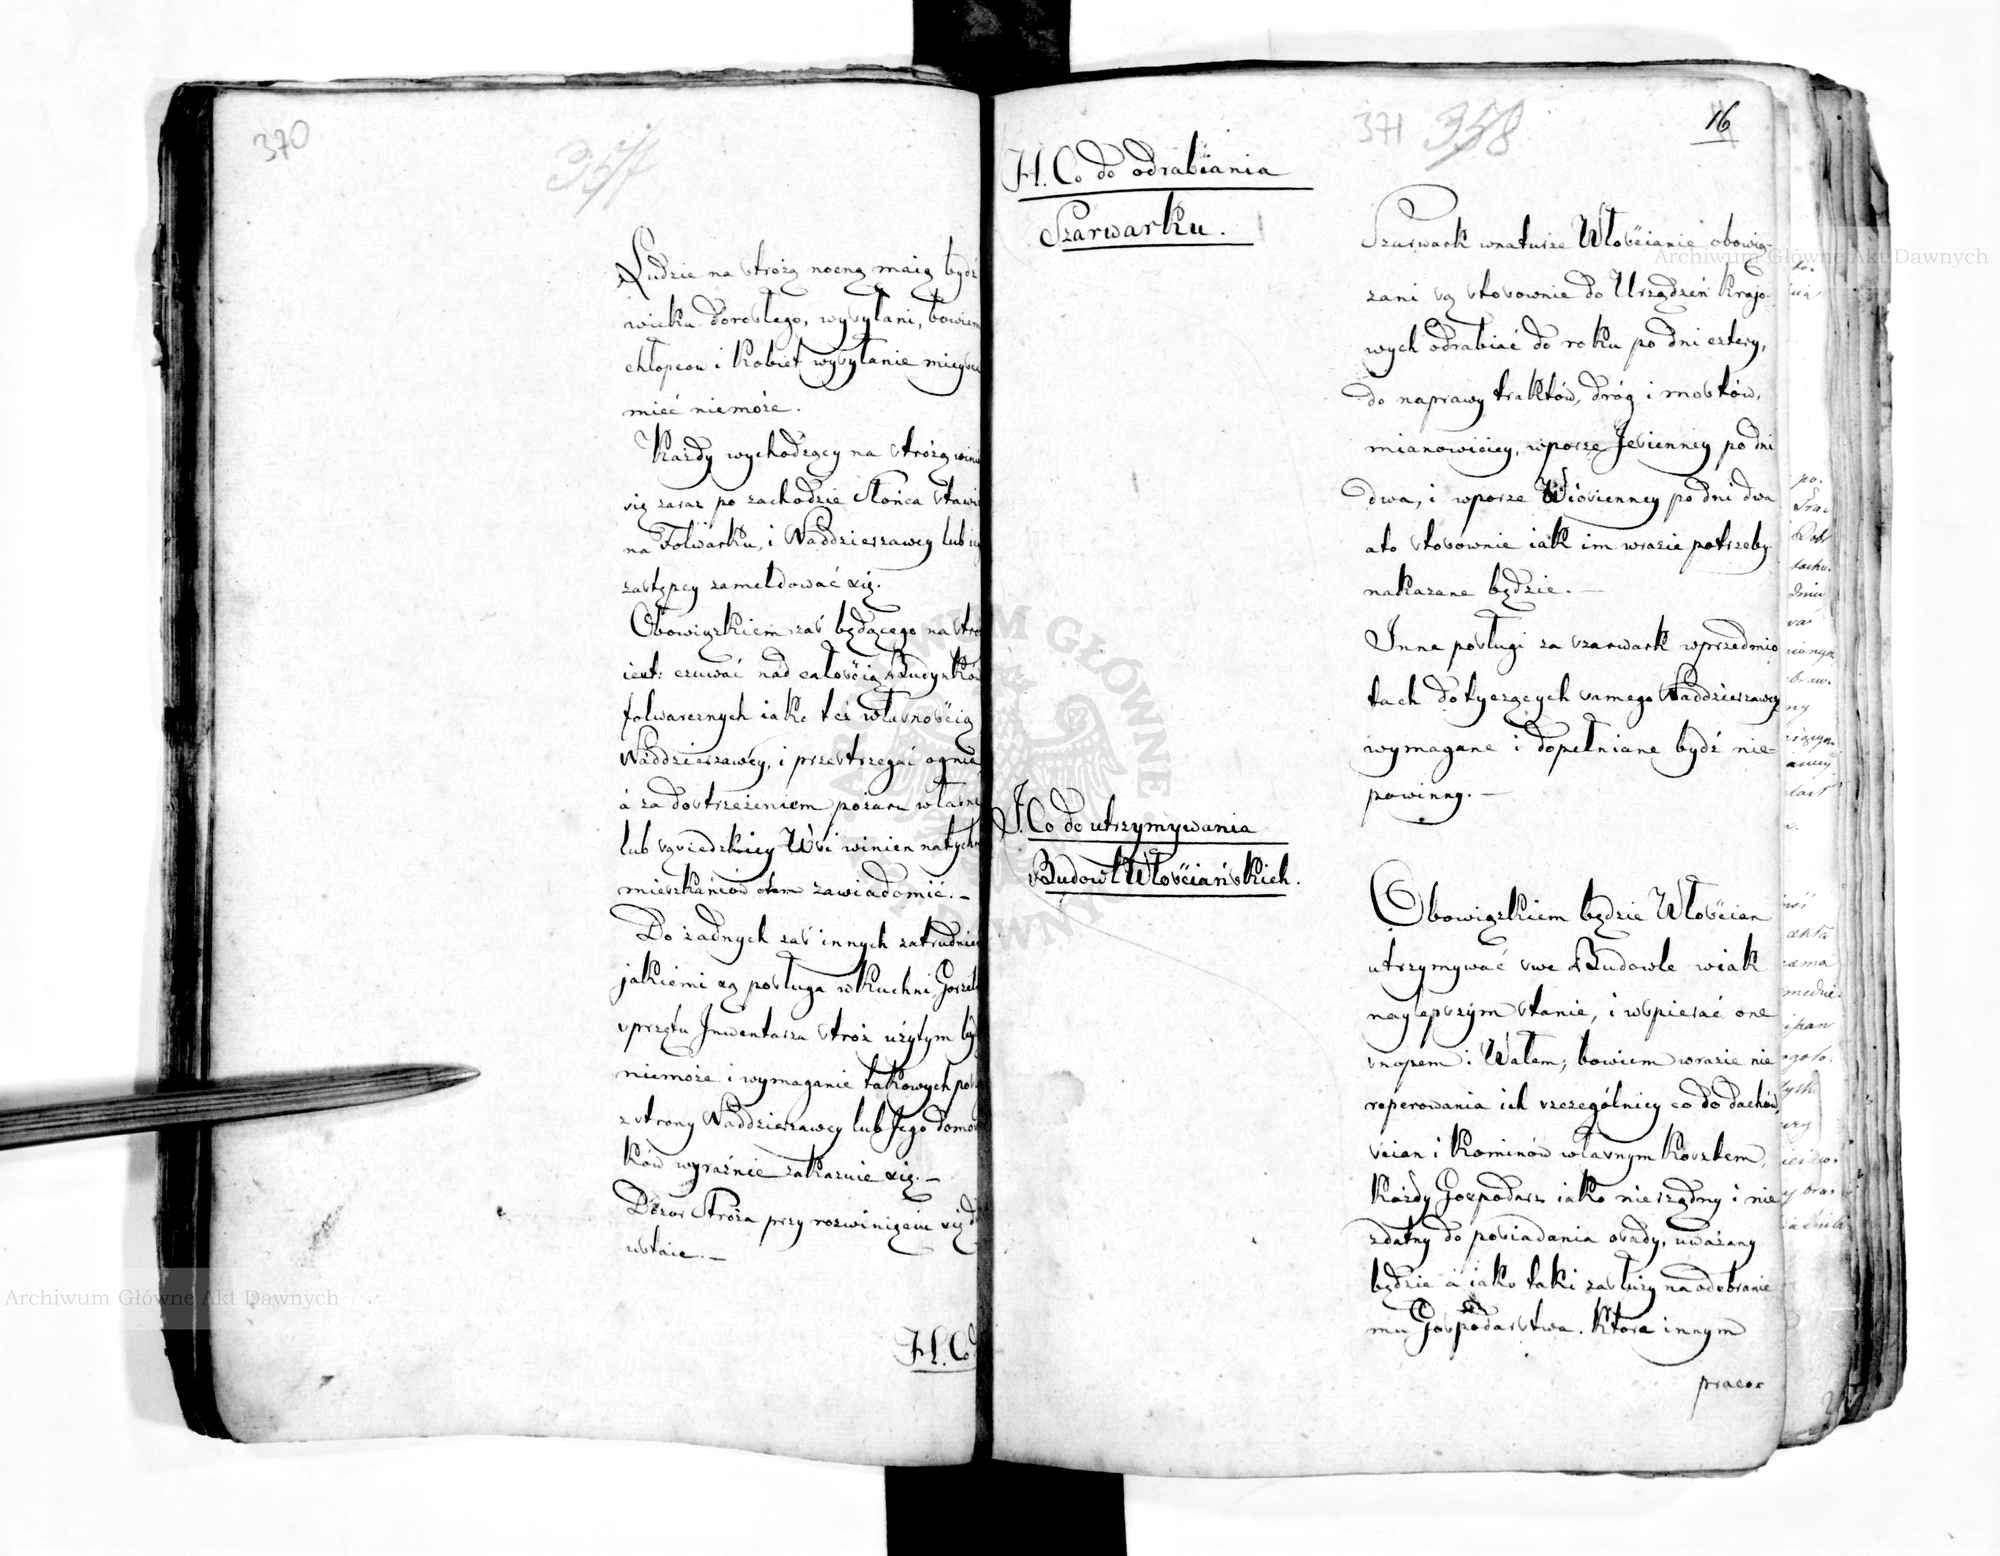 370
357
Ludzie na stróżą nocną maią bydź
wieku dorosłego, wysyłani, bowiem
chłopców i Kobiet wysyłanie mieysca
mieć niemoże.
Każdy wychodzący na stróżą winien
się zaraz po zachodzie Słońca stawić
na Folwarku, i Naddzierzawcy lub
zastępcy zameldować się.
Obowiązkiem zaś będącego na stró
iest: czuwać nad całością Budynków
folwarcznych iako też własnością
Naddzierzawcy, i przestrzegać ognia
á za dostrzeżeniem pożaru własney
lub sąsiedzkiey Wsi winien natychm
mieszkańców otem zawiadomić. –
Do żadnych zaś innych zatrudnień
jakiemi są posługa w Kuchni, Gorzelni
sprzętu Inwentarza stróż użytym bydź
niemoże i wymaganie takowych posł
z strony Naddzierzawcy lub Jego domow
ków wyraźnie zakazuie się. –
Dozór Stróża przy rozwinięciu się d
ustaie. –
H. Co d
371 358
16
H. Co do odrabiania
Szarwarku.
Szarwark wnaturze Włościanie obowią-
zani są stosownie do Urządzeń Krajo-
wych odrabiać do roku po dni cztery,
do naprawy traktów, dróg i mostów,
mianowiciey, wporze Jesienney po dni
dwa, i wporze Wiosienney po dni dwa
ato stosownie iak im wrazie potrzeby
nakazane będzie. –
Inne posługi za szarwark wprzedmio
tach dotyczących samego Naddzierzawcy
wymagane i dopełniane bydź nie-
powinny. –
J. Co do utrzymywania
Budowl Włościańskich.
Obowiązkiem będzie Włościan
utrzymywać swe Budowle wiak
naylepszym stanie, i wspierać one
snopem i Wałem; bowiem wrazie nie
reperowania ich szczególniey co do dachów,
ścian i Kominów własnym Kosztem,
Każdy Gospodarz iako nierządny i nie
zdatny do posiadania osady, uważany
będzie á iako taki zasłuży na odebranie
mu Gospodarstwa. Które innym
pracor
Archiwum Główne Akt Dawnych
Archiwum Główne Akt Dawnych
ARCHIWUM GŁÓWNE AKT DAWNYCH